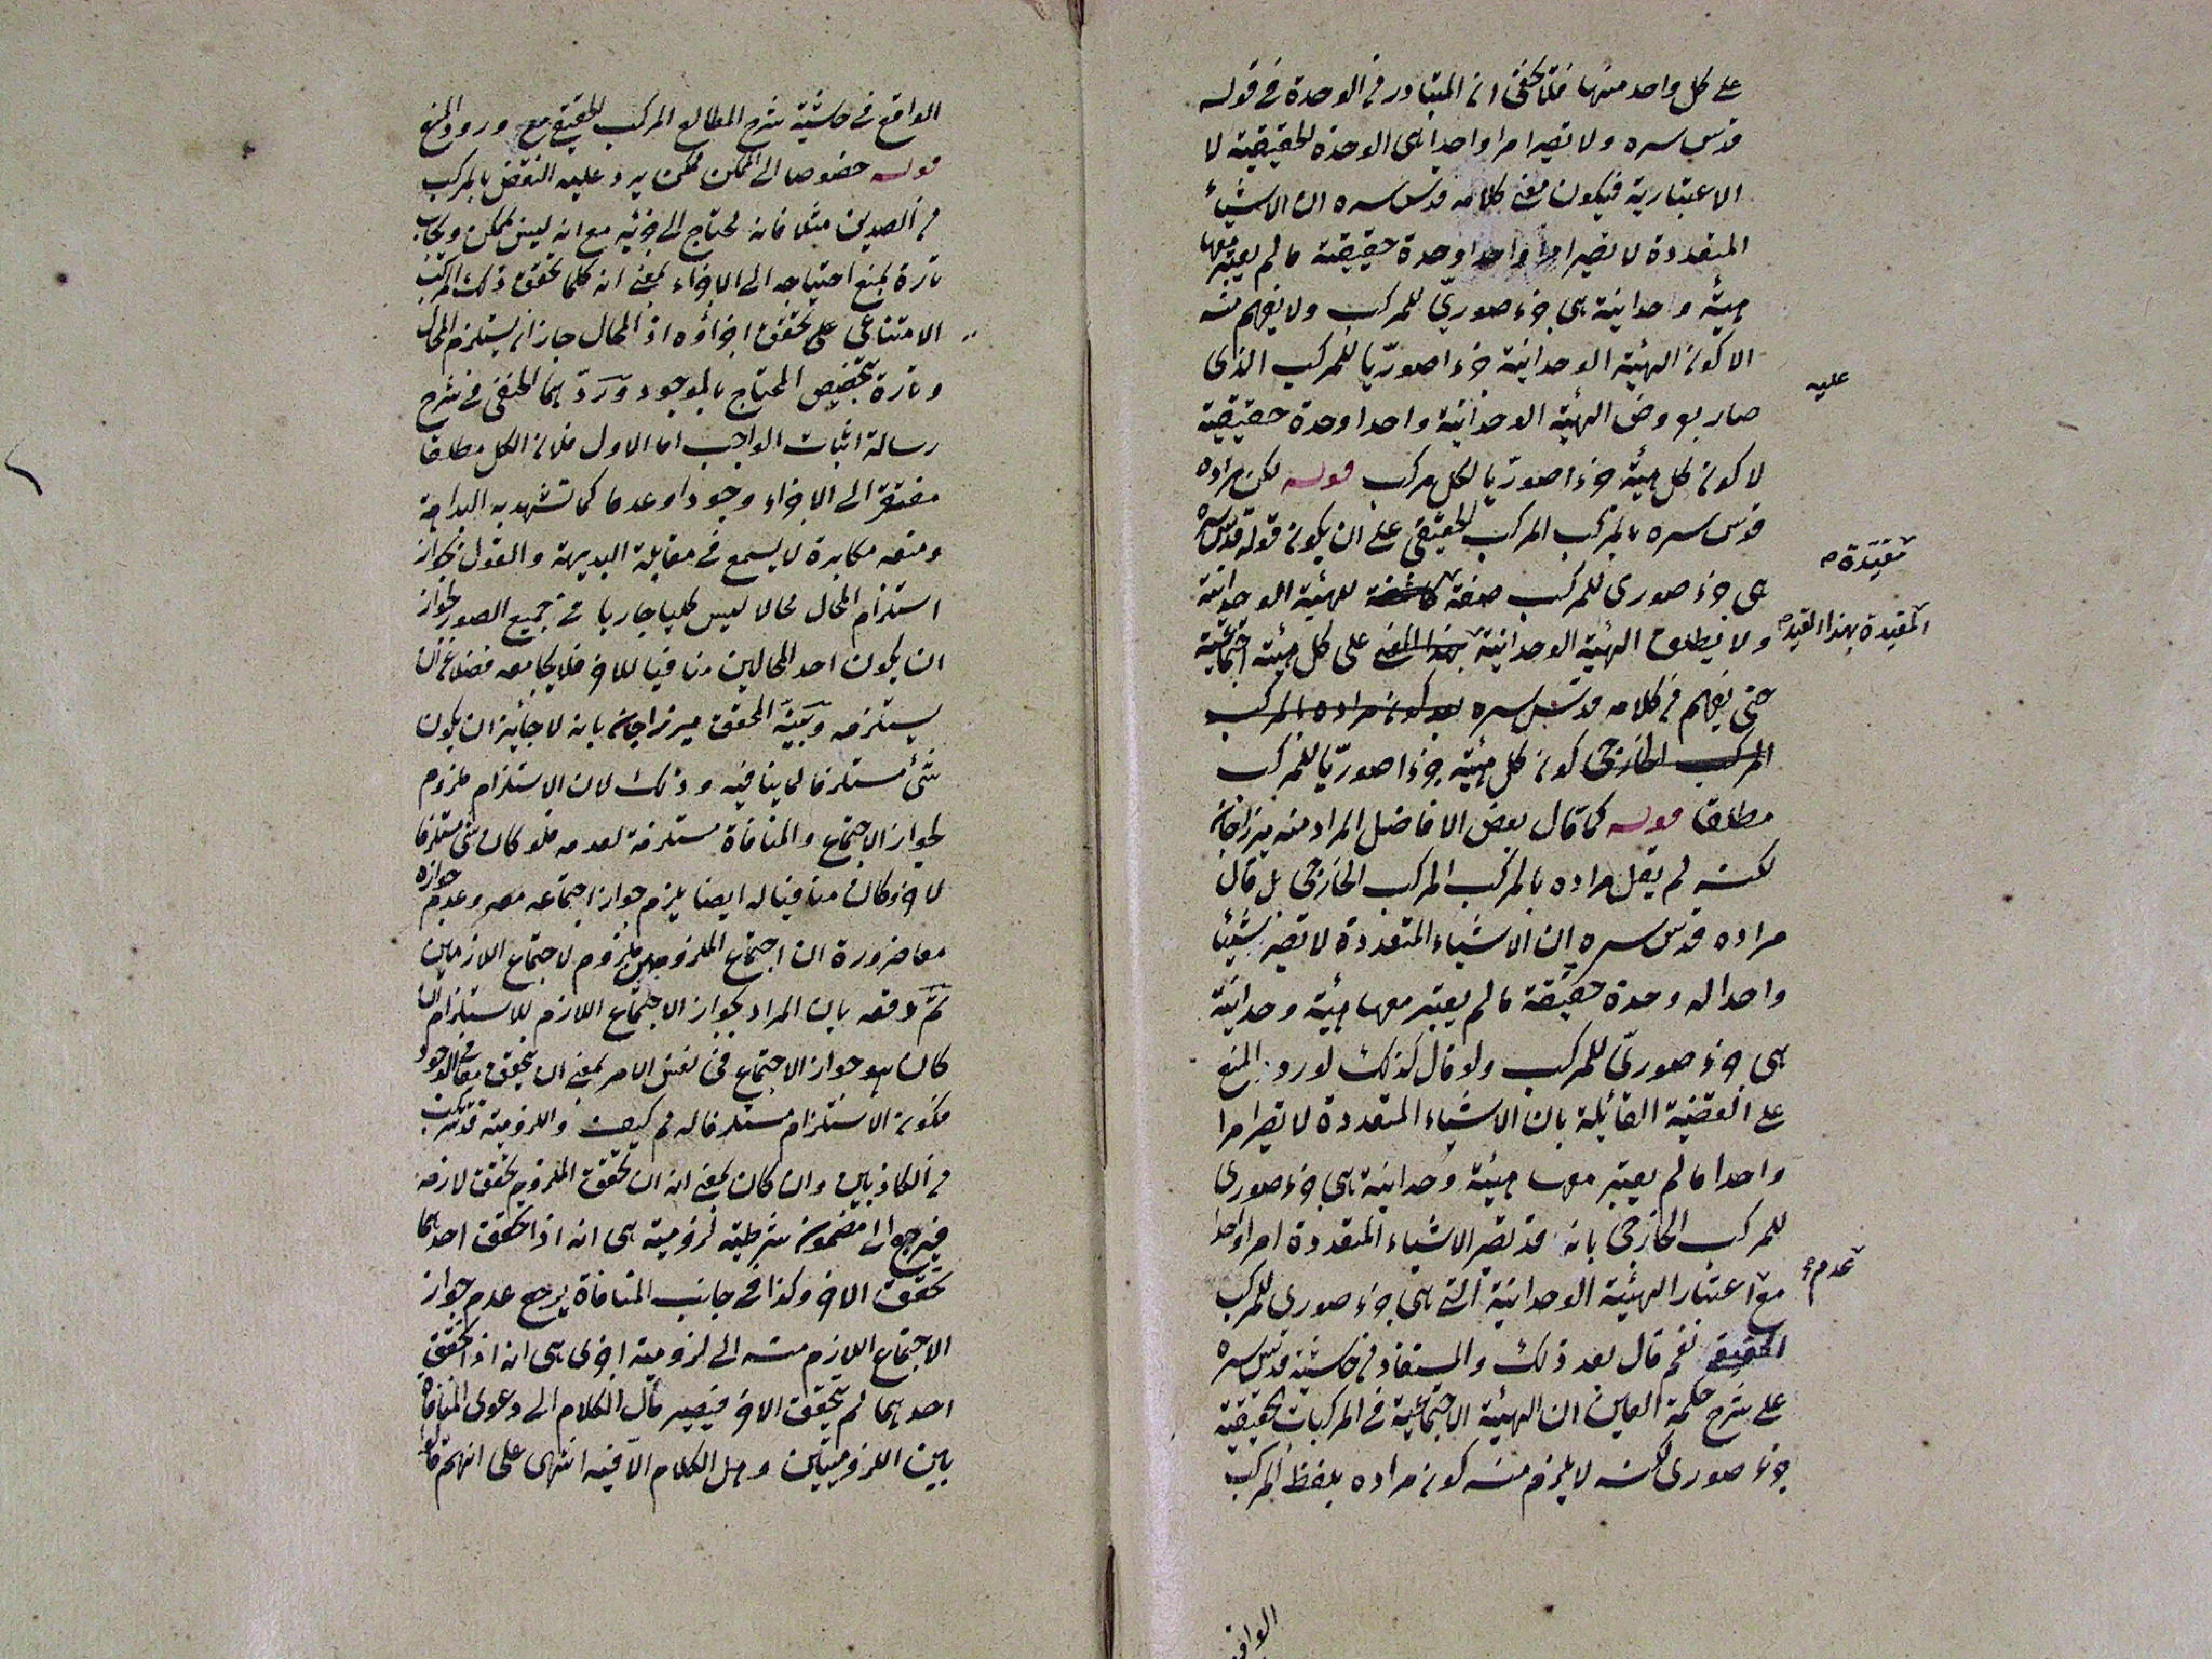 على كل واحد منها فلا يخفى ان المتبادر من الوحدة في قوله
قدس سره ولا تصير امرا واحدا هي الوحدة الحقيقية لا
الاعتبارية فيكون معنى كلامه قدس سره ان الاشياء
المتعددة لا تصير امرا واحدا وحدة حقيقية ما لم يعتبر معها
هيئة وحدانية هي جزء صوري للمركب ولا يفهم منه
الا كون الهيئة الوحدانية جزءا صوريا للمركب الذي
عليه
صار بعروض الهيئة الوحدانية واحدا وحدة حقيقية
لا كون كل هيئة جزءا صوريا لكل مركب قوله لكن مراده
قدس سره بالمركب المركب الحقيقي على ان يكون قوله قدس سره
مقيدة
هي جزء صوري للمركب صفة كاشفة للهيئة الوحدانية
المقيدة بهذا القيد
ولا يطلق الهيئة الوحدانية بهذا المعنى على كل هيئة اجتماعية
حتى يفهم من كلامه قدس سره بعد كون مراده بالمركب
المركب الخارجي كون كل هيئة جزءا صوريا للمركب
مطلقا قوله كما قال بعض الافاضل المراد منه ميرزاجان
لكنه لم يقل مراده بالمركب المركب الخارجي بل قال
مراده قدس سره ان الاشياء المتعددة لا تصير شيئا
واحدا له وحدة حقيقة ما لم يعتبر معها هيئة وحدانية
هي جزء صوري للمركب ولو قال كذلك لورد المنع
على القضية القائلة بان الاشياء المتعددة لا تصير امرا
واحدا ما لم يعتبر معها هيئة وحدانية هي جزء صوري
للمركب الخارجي بانه قد تصير الاشياء المتعددة امرا واحدا
عدم
مع اعتبار الهيئة الوحدانية التي هي جزء صوري للمركب
الحقيقي نعم قال بعد ذلك والمستفاد من حاشيته قدس سره
على شرح حكمة العين ان الهيئة الاجتماعية في المركبات الحقيقية
جزء صوري لكنه لا يلزم منه كون مراده بلفظ المركب
الواقع
الواقع في حاشية شرح المطالع المركب الحقيقي مع ورود المنع
قوله خصوصا الى الممكن ممكن يرد عليه النقض بالمركب
من الضدين مثلا فانه يحتاج الى جزئيه مع انه ليس بممكن ويجاب
تارة بمنع احتياجه الى الاجزاء بمعنى انه كلما تحقق ذلك المركب
الامتناعي على تحقق اجزاؤه اذ المحال جاز ان يستلزم المحال
وتارة بتخصيص المحتاج بالموجود وردّ بهما الحنفي في شرح
رسالة اثبات الواجب اما الاول فلان الكل مطلقا
مفتقر الى الاجزاء وجودا وعدما كما تشهد به البداهة
ومنعه مكابرة لا يسمع في مقابلة البديهة والقول بجواز
استلزام المحال محالا ليس كليا جاريا في جميع الصور لجواز
ان يكون احد المحالين منافيا للاخر فلا يجامعه فضلا عن ان
يستلزمه وبيّنه المحقق ميرزاجان بانه لا جائز ان يكون
شئ مستلزما لما ينافيه وذلك لان الاستلزام ملزوم
لجواز الاجتماع والمنافاة مستلزمة لعدمه فلو كان شئ مستلزما
لاخر وكان منافيا له ايضا يلزم جواز اجتماعه معه وعدم جوازه
معا ضرورة ان اجتماع الملزومين ملزوم لاجتماع اللازمين
ثم دفعه بان المراد بجواز الاجتماع اللازم للاستلزام ان
كان هو جواز الاجتماع في نفس الامر بمعنى ان يتحقق معا في الوجود
فكون الاستلزام مستلزما له ثم كيف واللزومية قد تتركب
من الكاذبين وان كان بمعنى انه ان تحقق الملزوم تحقق لازمه
فيرجع الى مضمون شرطية لزومية هي انه اذا تحقق احدهما
تحقق الاخر وكذا في جانب المنافاة يرجع عدم جواز
الاجتماع اللازم منه الى لزومية اخرى هي انه اذا تحقق
احدهما لم يتحقق الاخر فيصير مآل الكلام الى دعوى المنافاة
بين اللزوميتين وهل الكلام الا فيه انتهى على انهم قالوا